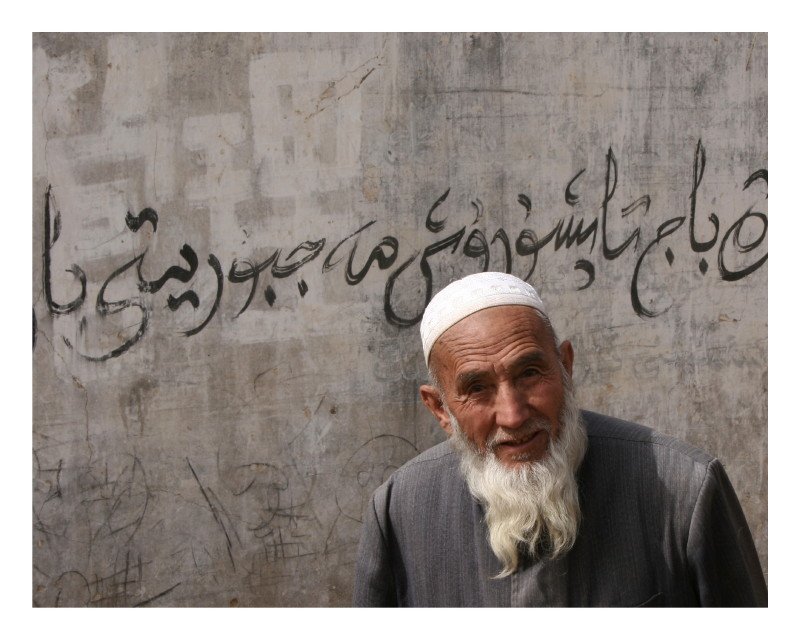 باج تاپشۇرۇش مەجبۇرىيىتى